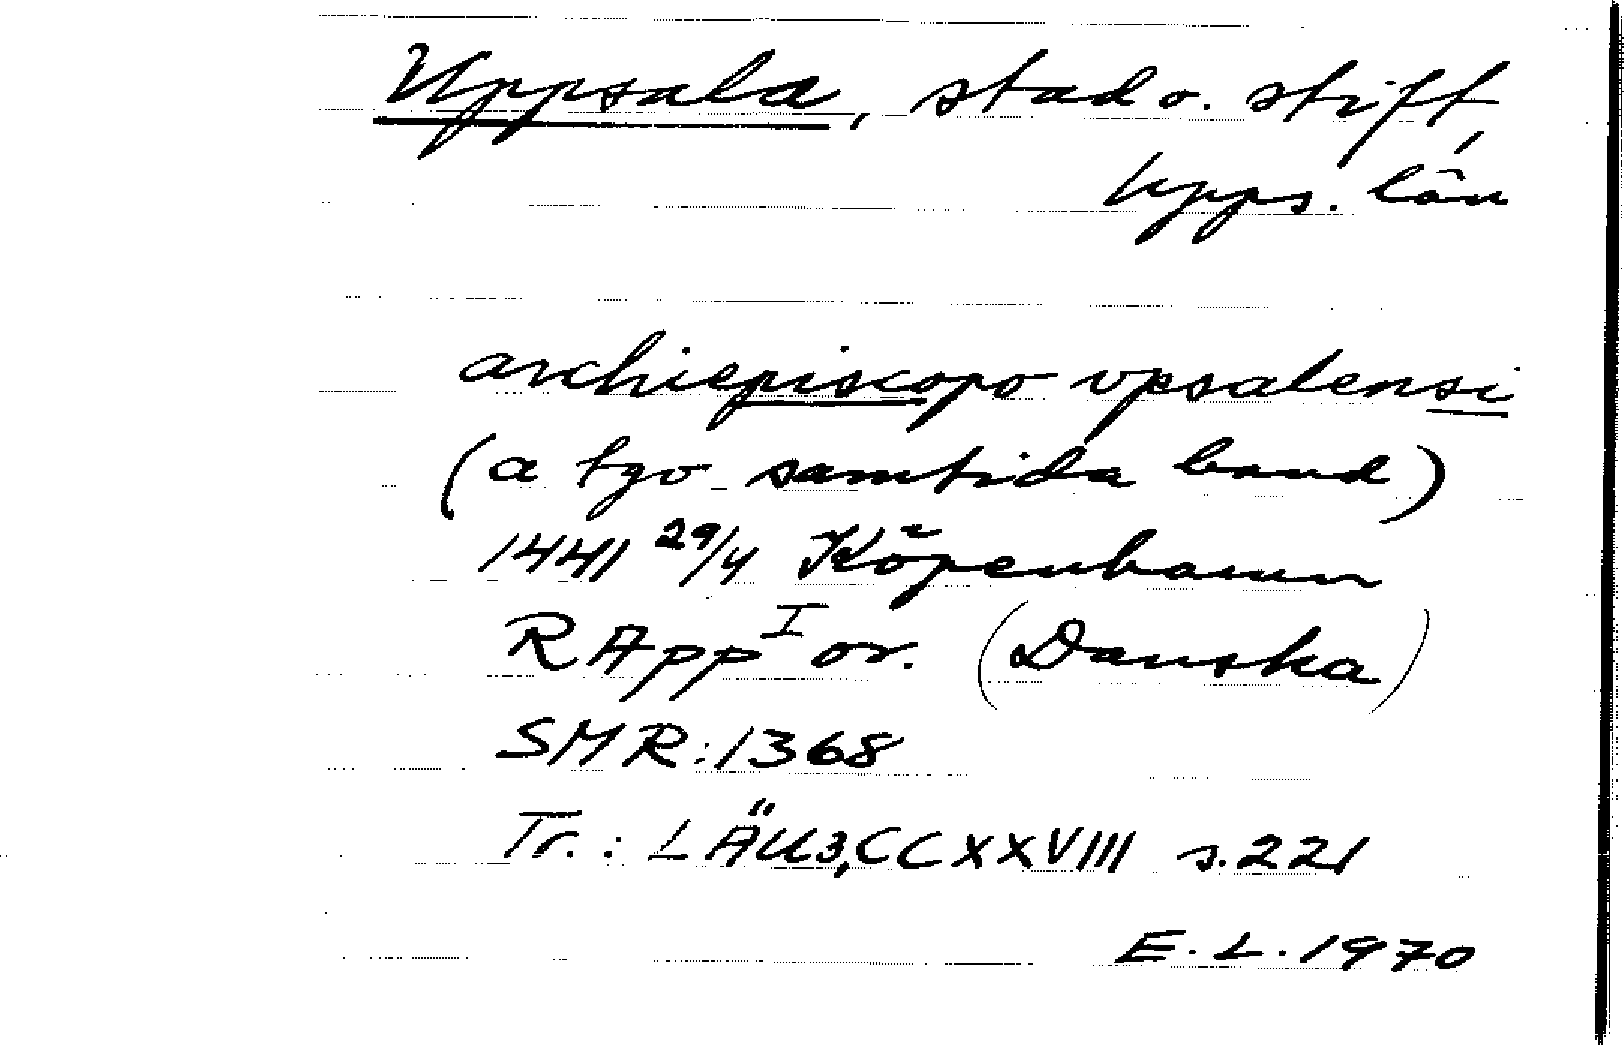 Uppsala, stad o. stift,
Upps. län
archiepiscopo vpsalensi
(a tgo samtida hand)
1441 29/4 Köpenhamn
RApp I or. (Danska)
SMR:1368
Tr.: LÄU3,CCXXVIII s.221
E.L.1970